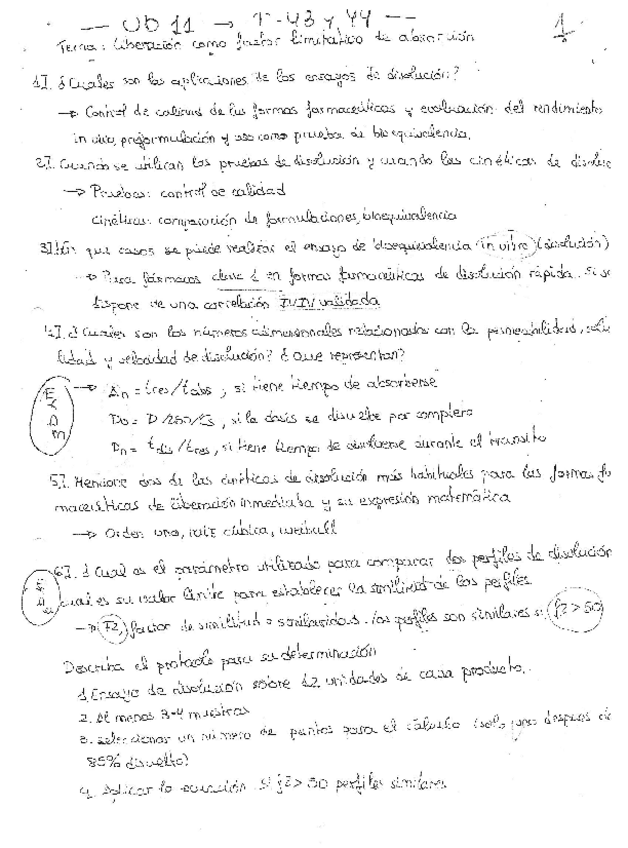 -- UD 11 → T-43 y 44 --
1
Tema: Liberación como factor limitativo de absorción
1I. ¿Cuales son las aplicaciones de los ensayos de disolución?
→ Control de calidad de las formas farmaceúticas y evaluación del rendimiento
in vivo, preformulación y uso como prueba de bioequivalencia.
2I. Cuando se utilizan las pruebas de disolución y cuando las cinéticas de disoluc
→ Pruebas: control de calidad
cinéticas: comparación de formulaciones, bioequivalencia
3I. En que casos se puede realizar el ensayo de bioequivalencia in vitro (disolución)
→ Para fármacos clase 1 en formas farmaceúticas de disolución rápida. Si se
dispone de una correlación IVIV validada
4I. ¿Cuales son los números adimensionales relacionados con la permeabilidad, solu
bilidad y velocidad de disolución? ¿Que representan?
→ An = tres/tabs, si tiene tiempo de absorberse
Do = D/250/Cs, si la dosis se disuelve por completo
Dn = tdis/tres, si tiene tiempo de disolverse durante el tránsito
5I. Mencione dos de las cinéticas de disolución más habituales para las formas fa
maceúticas de liberación inmediata y su expresión matemática
→ Orden uno, raíz cúbica, weibull
6I. ¿Cual es el parámetro utilizado para comparar dos perfiles de disolución
cual es su valor límite para establecer la similitud de los perfiles
→ F2, factor de similitud o similaridad. los perfiles son similares si f2 > 50
Describa el protocolo para su determinación
1. Ensayo de disolución sobre 12 unidades de cada producto.
2. Al menos 3-4 muestras
3. seleccionar un número de puntos para el cálculo (solo uno después de
85% disuelto)
4. Aplicar la ecuación. Si f2 > 50 perfiles similares